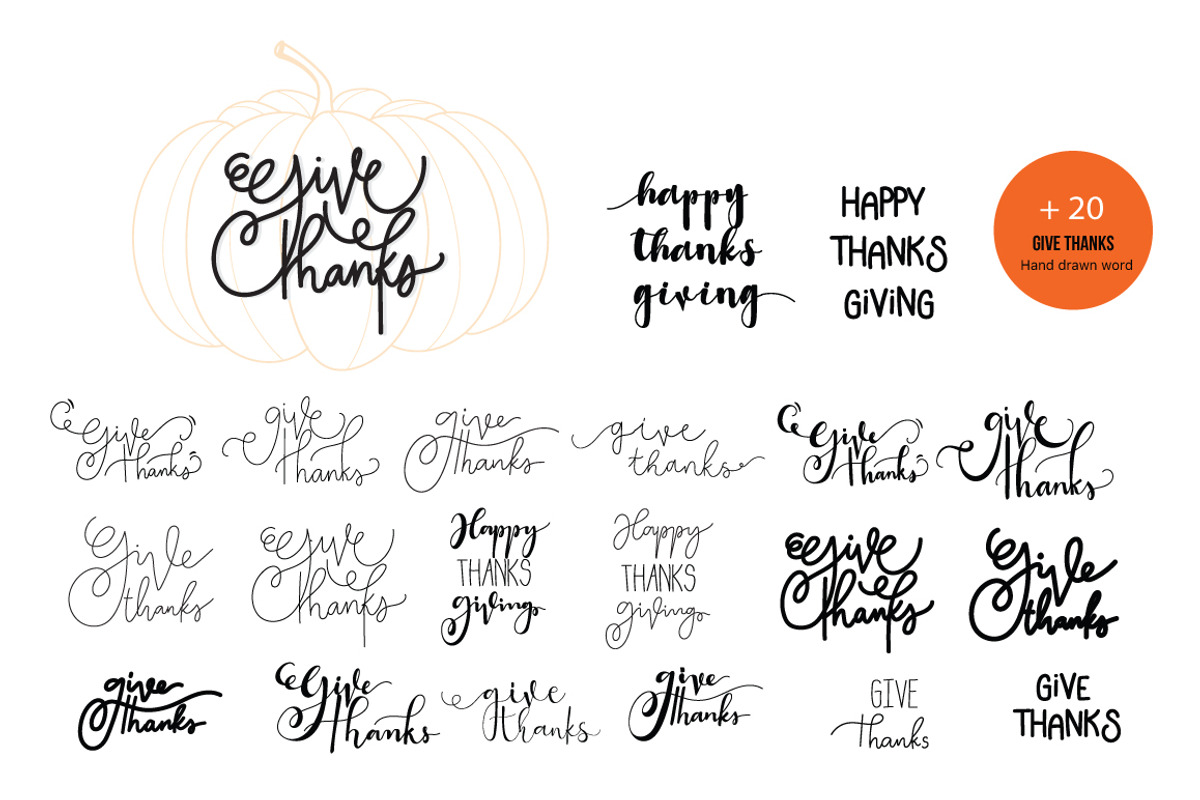 Give
Thanks
happy
thanks
giving
HAPPY
THANKS
GiViNG
+ 20
GIVE THANKS
Hand drawn word
Give
Thanks
give
thanks
give
thanks
give
thanks
Give
Thanks
give
thanks
Give
thanks
Give
Thanks
Happy
THANKS
giving
Happy
THANKS
giving
Give
Thanks
Give
thanks
give
thanks
Give
Thanks
give
thanks
give
thanks
GIVE
Thanks
GiVE
THANKS